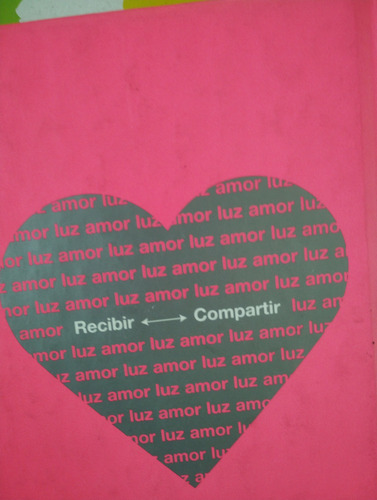 amor luz
amor luz amor luz amor luz
amor luz amor luz amor luz amo
or luz amor luz amor luz amor luz a
z amor luz amor luz amor luz amor luz
or luz amor luz amor luz amor luz amor
amor Recibir ↔ Compartir luz am
mor luz amor luz amor luz amor luz
uz amor luz amor luz amor luz
or luz amor luz amor luz
luz amor luz amo
luz amor luz
z am